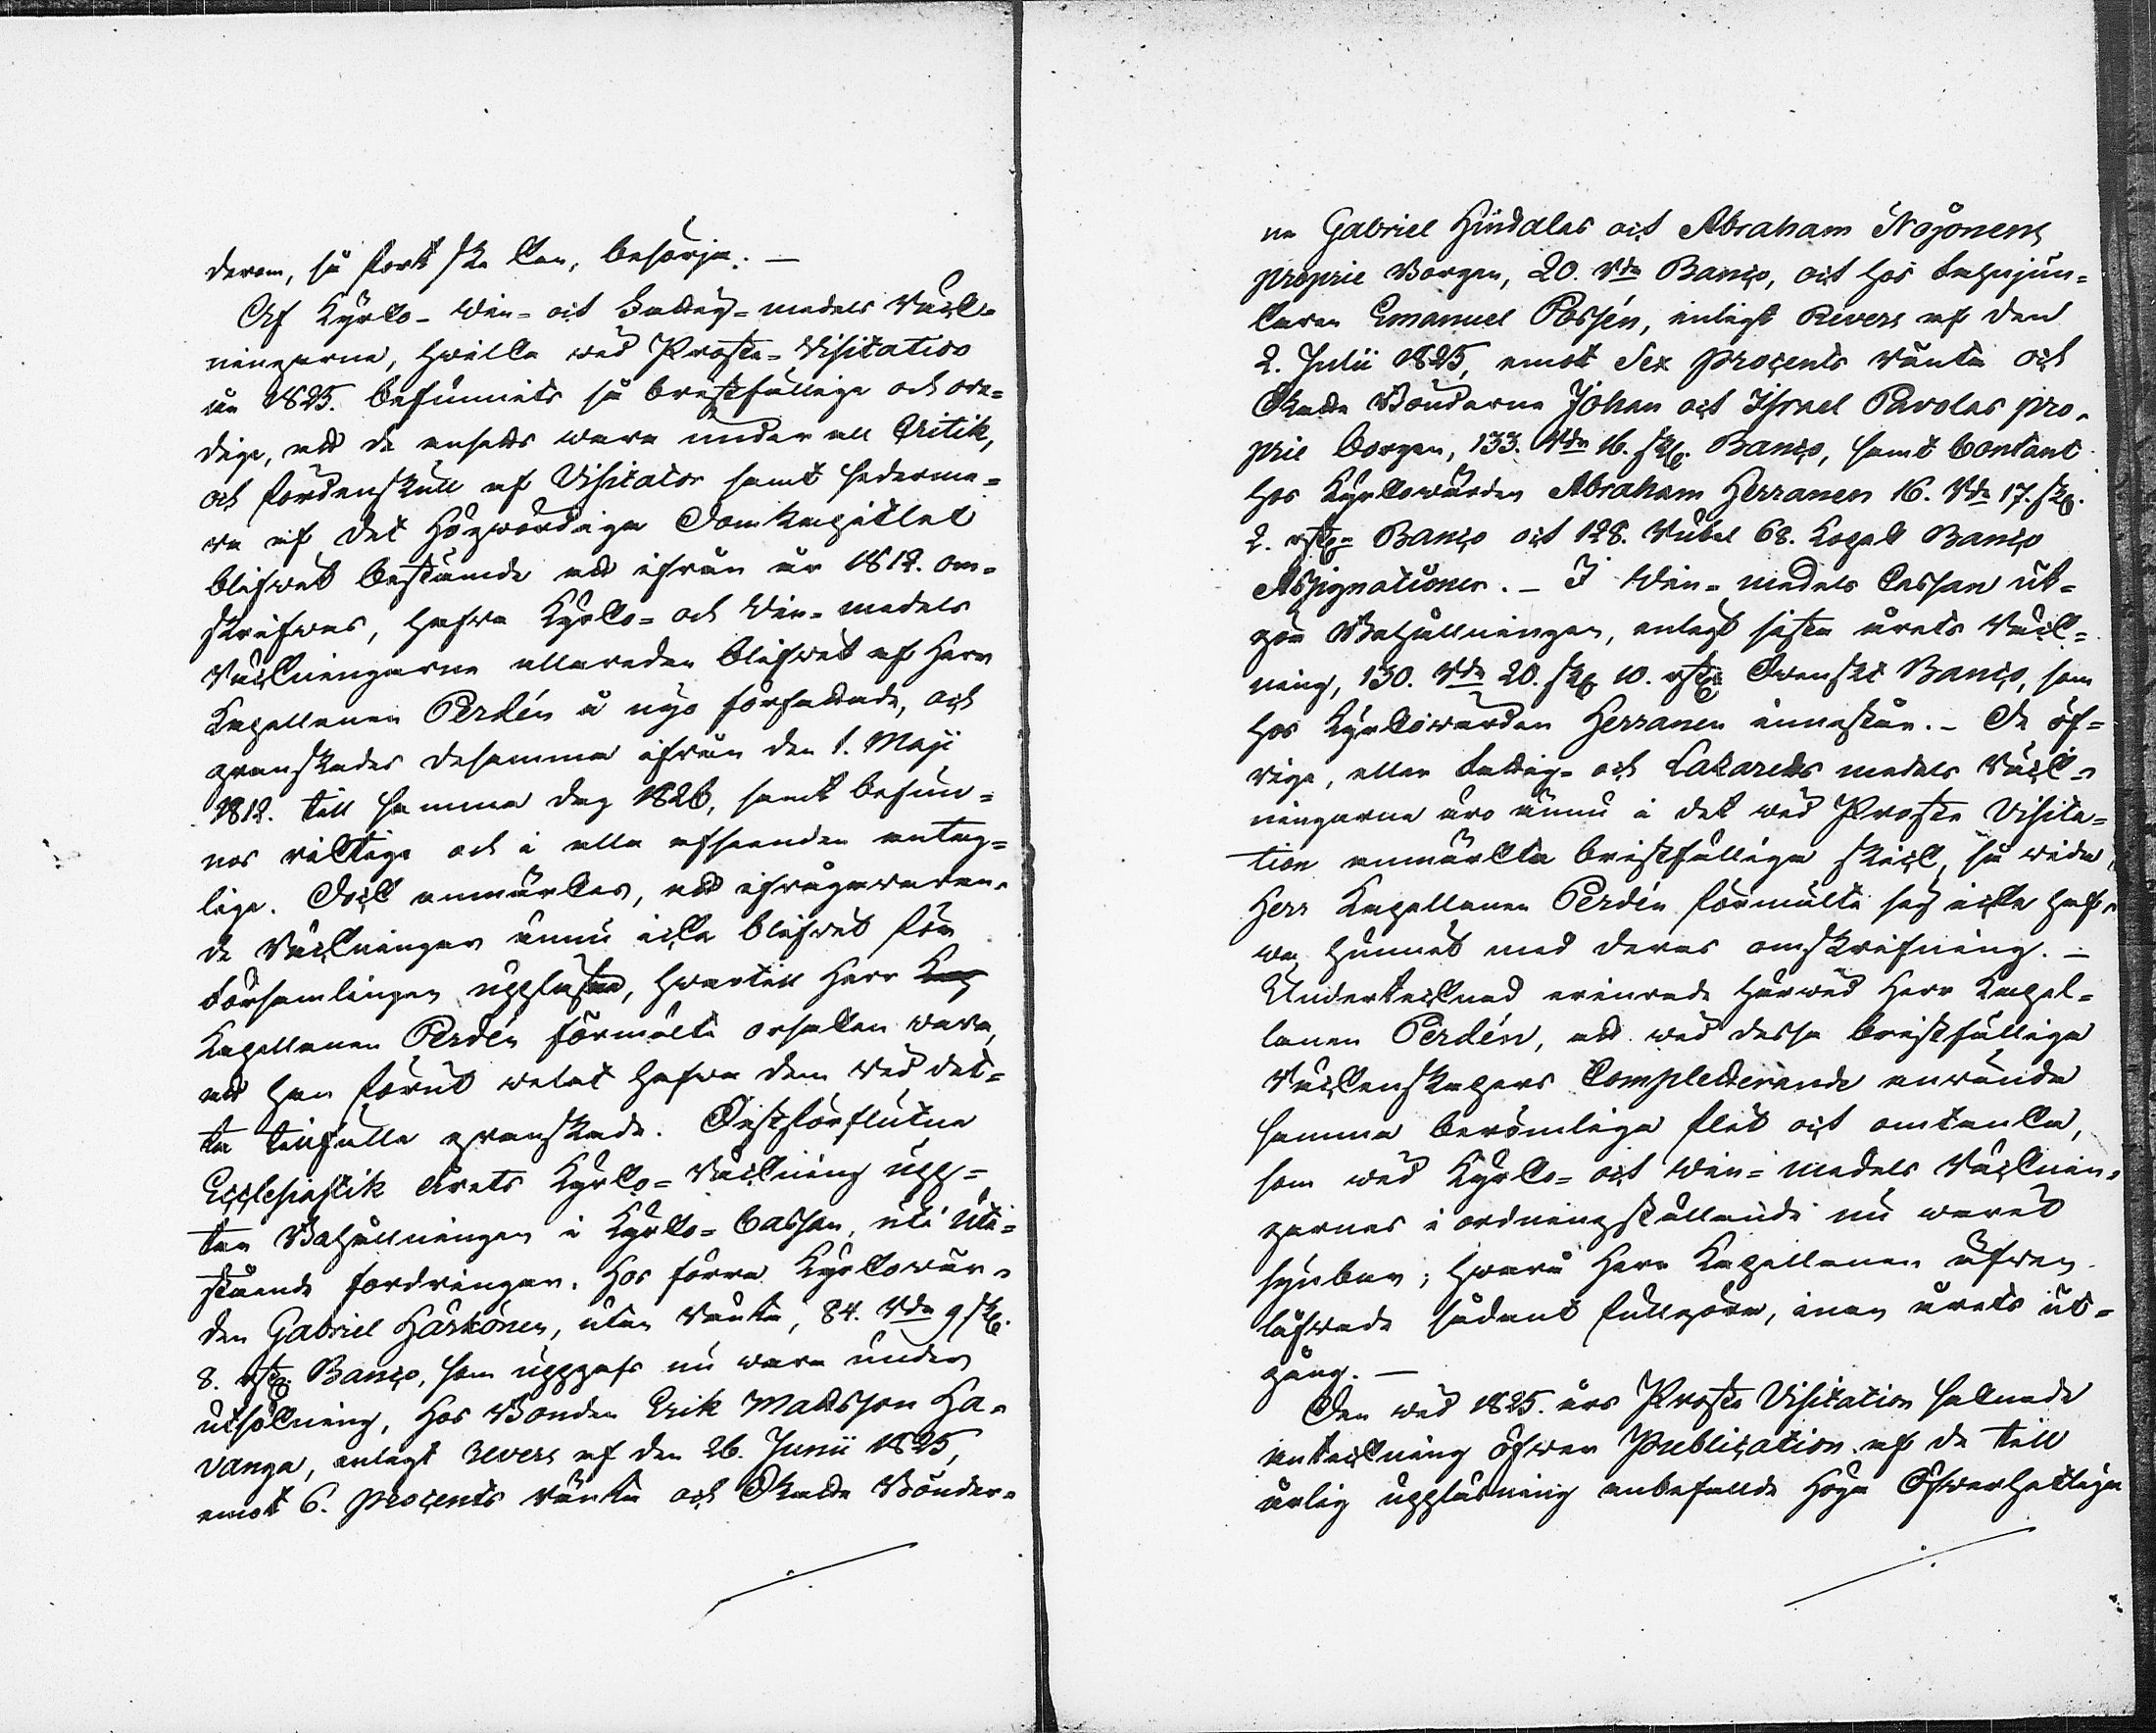 derom, så fort ske kan, besörja. —
Af Kyrko- Win- och Fattig-medels Räk-
ningarne, hwilka wid Proste-Visitation
år 1825. befunnits så bristfällige och ore-
dige, att de ansetts wara under all Critik,
och fördenskull af Visitator samt sederme-
ra af det Högwördiga Domkapitlet
blifwit bestämde att ifrån år 1812. om-
skrifwas, hafwa Kyrko- och Win-medels
Räkningarne allaredan blifwit af Herr
Kapellanen Perdén å nyo författade, och
granskades desamma ifrån den 1. Maji
1812. till samma dag 1826, samt befun-
nos riktige och i alla afseenden antag-
lige. Dock anmärktes, att ifrågawaran-
de Räkningar ännu icke blifwit för
Församlingen upplästa, hwartill Herr Kap
Kapellanen Perdén förmälte orsaken wara,
att han förut welat hafwa dem wid det-
ta tillfälle granskade. Sistförflutne
Ecclesiastik årets Kyrko-Räkning upp-
tar Behållningen i Kyrko-Cassan, uti Ute-
stående fordringar. Hos förra Kyrkowär-
den Gabriel Härkönen, utan ränta, 84. Rdr 9 sk.
8. rst. Banco, som uppgafs nu wara under
utsökning, Hos Bonden Erik Matsson Ha-
vanga, enligt Revers af den 26. Junii 1825,
emot 6. procents ränta och Skatte Bönder-
ne Gabriel Hindalas och Abraham Nojonens
proprie Borgen, 20. Rdr Banco, och hos Fahnjun-
karen Emanuel Possén, enligt Revers af den
2. Julii 1825, emot Sex procents ränta och
Skatte Bönderne Johan och Israel Pavolas pro-
prie borgen, 133. Rdr 16. sk. Banco, samt Contant
hos Kyrkowärden Abraham Herranen 16. Rdr 17. sk.
2. rst. Banco och 128. Rubel 68. Kopek Banco
Assignationer. – I Win-medels Cassan ut-
gör Behållningen, enligt sista årets Räk-
ning, 130. Rdr 20. sk. 10. rst. Swenskt Banco, som
hos Kyrkowärden Herranen innestår. – De öf-
rige, eller Fattig- och Lazaretts medels Räk-
ningarne äro ännu i det wid Proste Visita-
tion anmärkta bristfälliga skick, så wida
Herr Kapellanen Perdén förmälte sig icke haf-
wa hunnit med deras omskrifning. –
Undertecknad erinrade härwid Herr Kapel-
lanen Perdén, att wid dessa bristfälliga
Räkenskapers Completterande använda
samma berömliga flit och omtanka,
som wid Kyrko- och Win-medels Räknin-
garnes i ordningställande nu warit
synbar; hwarå Herr Kapellanen äfwen
låfwade sådant fullgöra, inan årets ut-
gång. —
Den wid 1825. års Proste Visitation saknade
anteckning öfwer Publication af de till
årlig uppläsning anbefallde Höga Öfwerhetliga